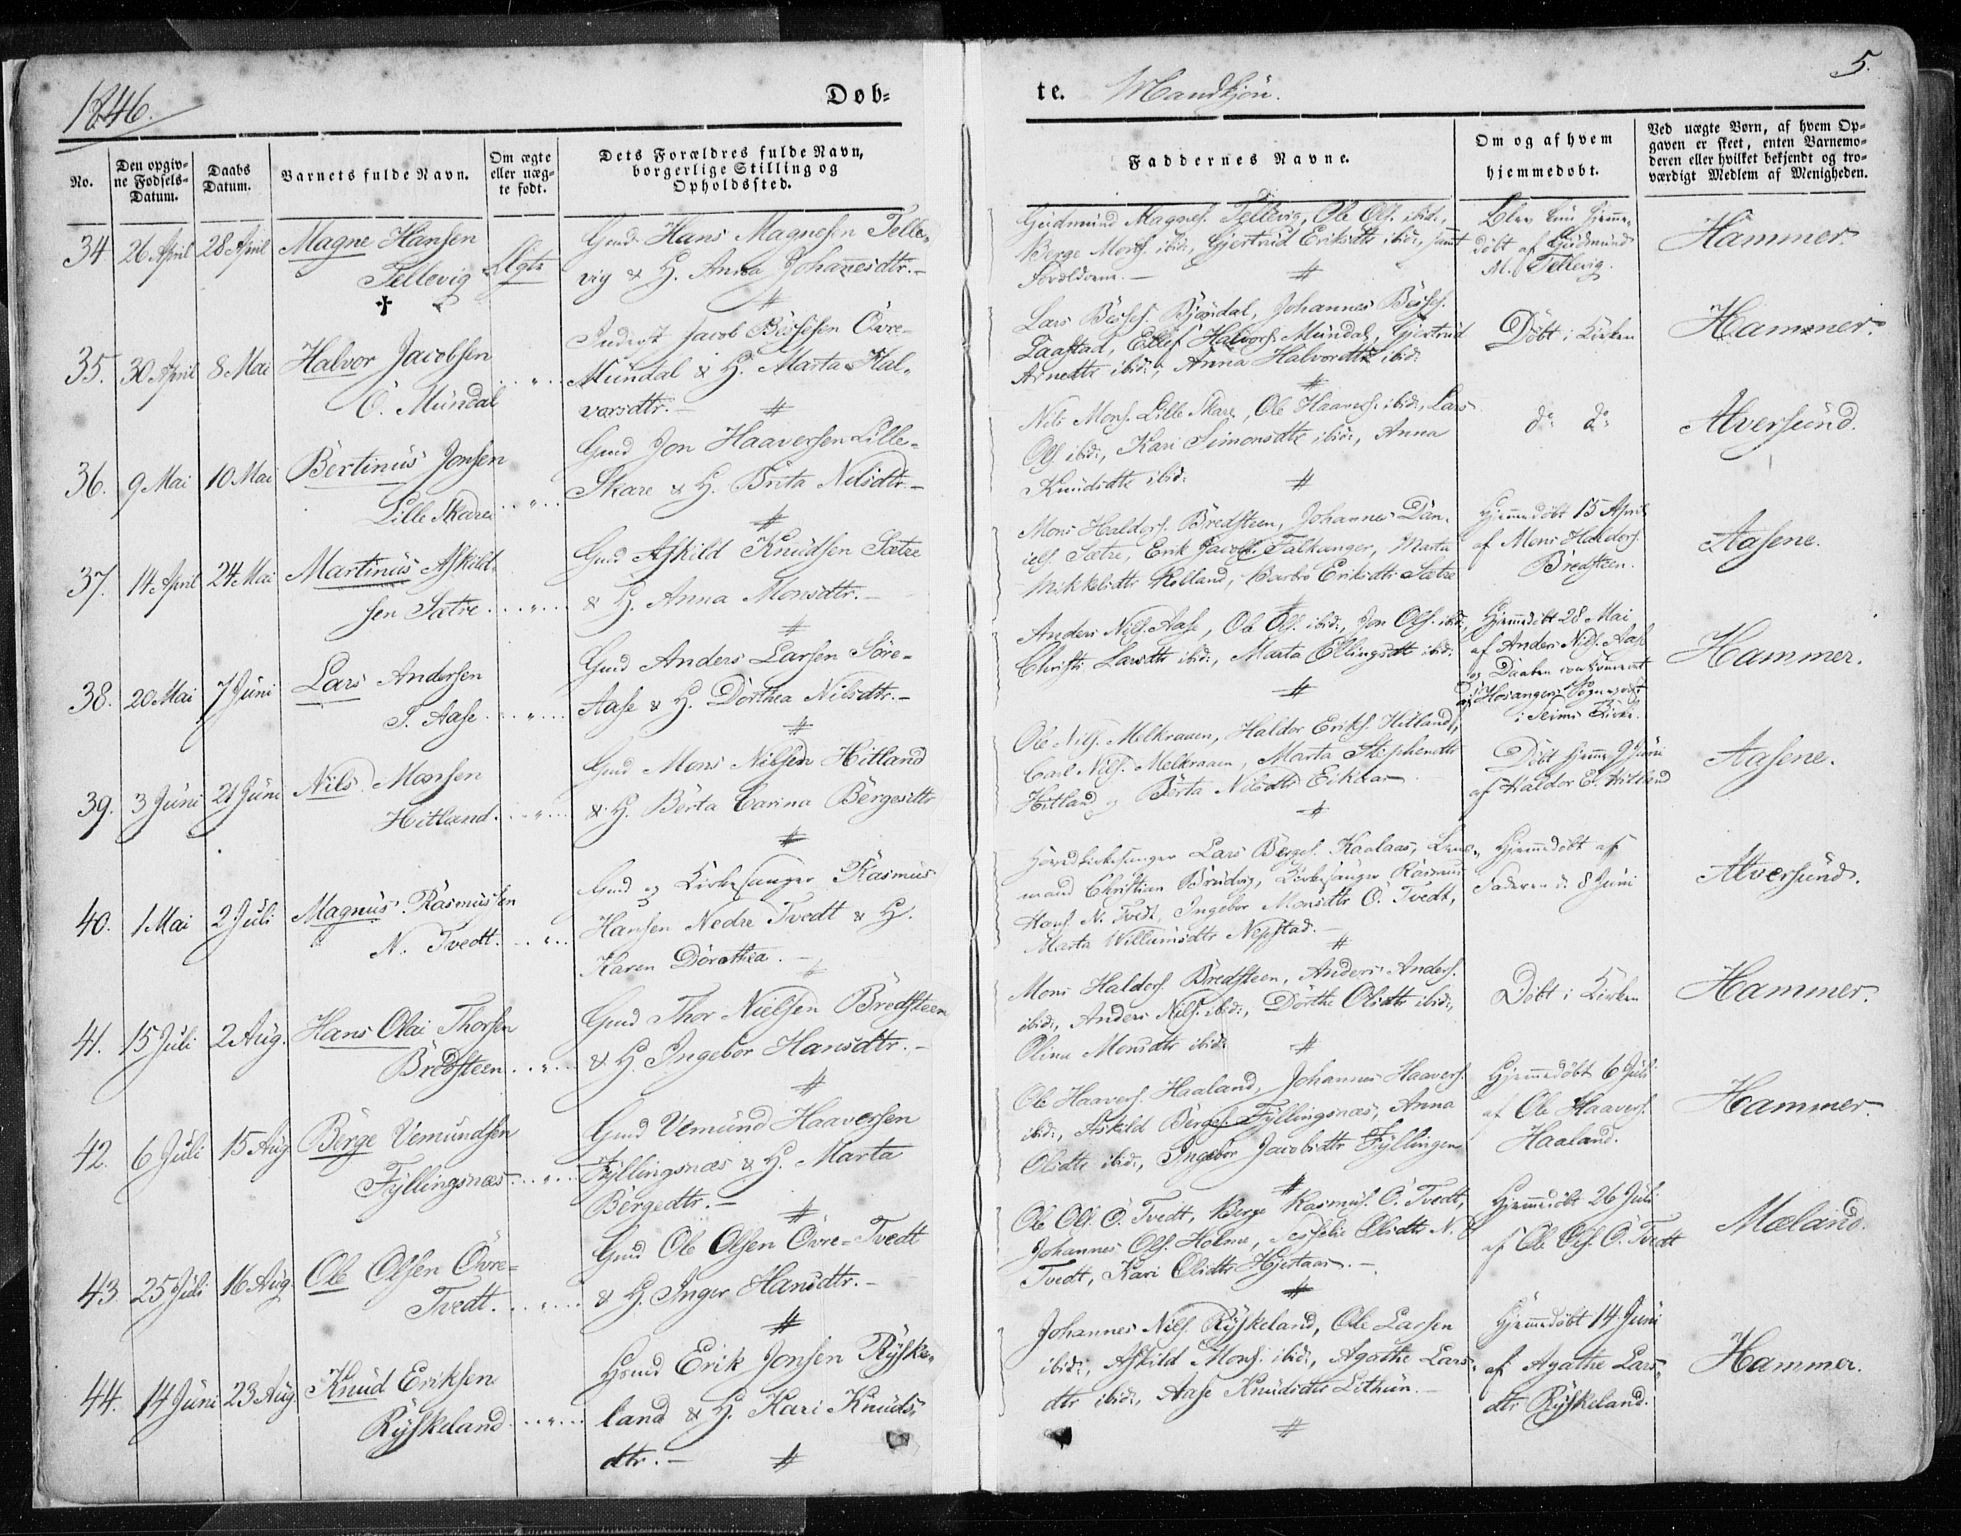 1846.
Døb=
te. Mandkjön.
5.
No.
Den opgiv-
ne Fødsels-
Datum.
Daabs
Datum.
Barnets fulde Navn.
Om ægte
eller uæg-
te født.
Dets Forældres fulde Navn,
borgerlige Stilling og
Opholdssted.
Faddernes Navne.
Om og af hvem
hjemmedøbt.
Ved uægte Børn, af hvem Op-
gaven er skeet, enten Barnemo-
deren eller hvilket bekjendt og tro-
værdigt Medlem af Menigheden.
34 26 April 28 April Magne Hansen
Tellevig Ægte
✝
Gmd. Hans Magnesen Telle-
vig & H. Anna Johannesdtr.-
Gudmund Magnes. Tellevig, Ole Ols. ibid.,
Berge Mons. ibid., Gjertrud Eriksdtr ibid., samt
Forældrene.-
döbt af Gudmund
M. Tellevig.
Hammer.
35. 30 April 8 Mai Halvor Jacobsen
Ö. Mundal
Inderst Jacob Bössesen Övre-
Mundal & H. Marta Hal-
vorsdtr.-
Lars Bösses. Björndal, Johannes Bösses.
Taastad, Ellef Halvors. Mundal, Gjertrud
Arnedtr ibid., Anna Halvorsdtr ibid.
Döbt i Kirken
Hammer.
36. 9 Mai 10 Mai Bertinus Jonsen
Lille Skare
Gmd Jon Haaversen Lille-
Skare & H. Brita Nilsdtr.-
Nils Mons. Lille Skare, Ole Haavers. ibid., Lars
Ols. ibid., Kari Simonsdtr ibid., Anna
Knudsdtr ibid.
do do
Alversund.
37. 14 April 24 Mai Martinus Askild-
sen Sætre
Gmd Askild Knudsen Sætre
& H. Anna Monsdtr.-
Mons Haldors. Bredsteen, Johannes Dan-
iels. Sætre, Erik Jacobs. Falkanger, Marta
Mikkelsdtr Hitland, Barbro Eriksdtr Sætre
Hjemmedöbt 15 April
af Mons Haldors.
Bredsteen.
Aasene.
38. 20 Mai 7 Juni Lars Andersen
S. Aase
Gmd Anders Larsen Söre-
Aase & H. Dorthea Nilsdtr.-
Anders Nils. Aase, Ole Ols. ibid., Jon Ols. ibid.,
Christi Larsdtr ibid., Marta Ellingsdtr ibid.
Hjemmedöbt 28 Mai
af Anders Nils. Aase
og Daaben confirmeret
af Hosangers Sognepræst
i Seims Kirke.
Hammer.
39. 3 Juni 21 Juni Nils Monsen
Hitland
Gmd Mons Nilsen Hitland
& H. Berta Carina Bergesdtr
Ole Nils. Melkraaen, Haldor Eriks. Hitland,
Carl Nils. Melkraaen, Marta Stephensdtr
Hitland og Berta Nilsdtr Eikaas
Döbt hjemme 9 Juni
af Haldor E. Hitland
Aasene.
40. 1 Mai 2 Juli Magnus Rasmussen
N. Tvedt.
Gmd og Kirkesanger Rasmus
Hansen Nedre Tvedt & H.
Karen Dorothea.-
Hovedkirkesanger Lars Berges. Kaalaas, Lens-
mand Christian Brudvig, Kirkesanger Rasmus
Hans. N. Tvedt, Ingebor Monsdtr Ö. Tvedt,
Marta Willumsdtr Nepstad.-
Hjemmedöbt af
Faderen d. 8 Juni
Alversund.
41. 15 Juli 2 Aug. Hans Olai Thorsen
Bredsteen
Gmd Thor Nielsen Bredsteen
& H. Ingebor Hansdtr.-
Mons Haldors. Bredsteen, Anders Anders.
ibid., Anders Nils. ibid., Dorthe Olsdtr ibid.,
Olina Monsdtr ibid.
Döbt i Kirken
Hammer.
42. 6 Juli 15 Aug Berge Vemundsen
Fyllingsnæs
Gmd Vemund Haaversen
Fyllingsnæs & H. Marta
Bergedtr.-
Ole Haavers. Haaland, Johannes Haavers.
ibid., Askild Berges. Fyllingsnæs, Anna
Olsdtr ibid., Ingebor Jacobsdtr Fyllingsnæs
Hjemmedöbt 6 Juli
af Ole Haavers.
Haaland.
Hammer.
43. 25 Juli 16 Aug Ole Olsen Övre-
Tvedt.
Gmd Ole Olsen Övre-Tvedt
& H. Inger Hansdtr.-
Ole Ols. Ö. Tvedt, Berge Rasmus. Ö. Tvedt,
Johannes Ols. Holme, Olsdtr N.
Tvedt, Kari Olsdtr Hjertaas.-
Hjemmedöbt 26 Juli
af Ole Ols. Ö. Tvedt
Mæland.
44. 14 Juni 23 Aug. Knud Eriksen
Ryskeland
Gmd Erik Jonsen Ryske-
land & H. Kari Knuds-
dtr.-
Johannes Nils. Ryskeland, Ole Larsen
ibid., Askild Mons. ibid., Agathe Lars-
dtr ibid., Aase Knudsdtr Lethun.-
Hjemmedöbt 14 Juni
af Agathe Lars-
dtr Ryskeland.
Hammer.